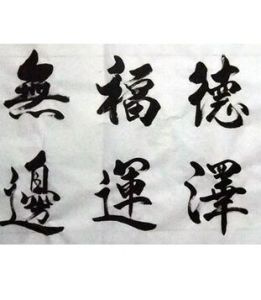 德澤
福運
無邊